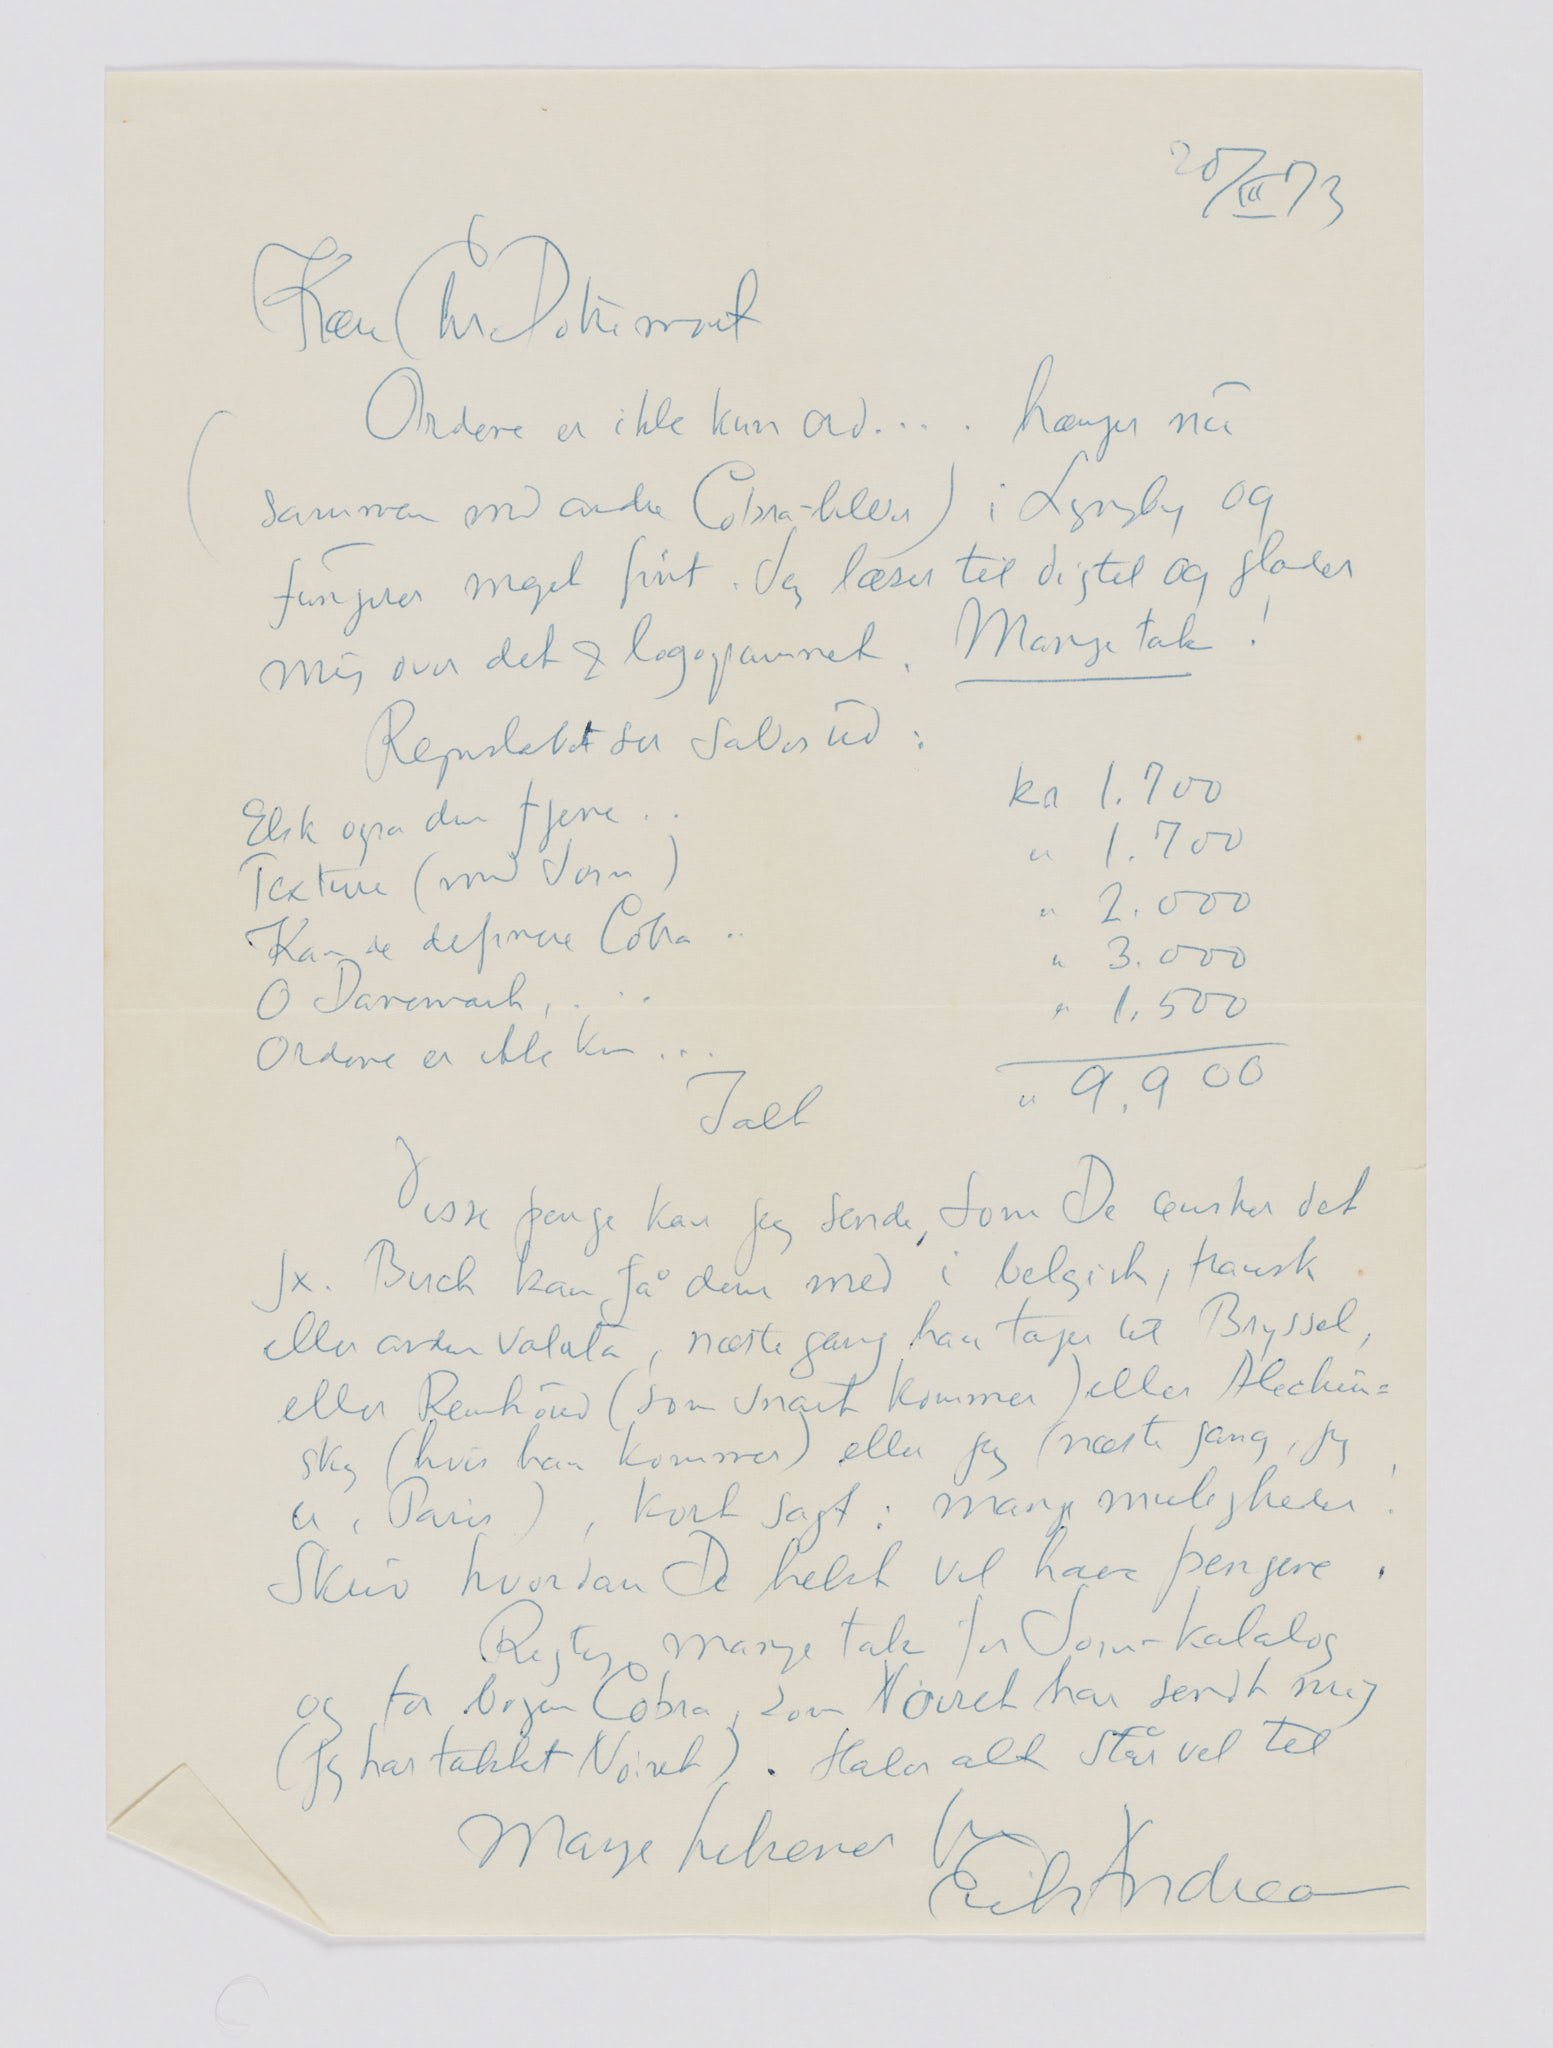 20/III 73
Kære Chr. Dotremont
Ordene er ikke kun ord.... hænger nu
(sammen med andre Cobra-billeder) i Lyngby og
fungerer meget fint. Jeg læser tit digtet og glæder
mig over det & logogrammet. Mange tak!
Regnskabet ser således ud:
Elsk også den fjerne .. kr 1.700
Texture (med Jorn) " 1.700
Kan de definere Cobra .. " 2.000
O Danemark, .... " 3.000
Ordene er ikke kun ... " 1.500
Ialt " 9.900
Disse penge kan jeg sende, som De ønsker det
fx. Birch kan få dem med i belgisk, fransk
eller anden valuta, næste gang han tager til Bryssel,
eller Reinhoud (som snart kommer) eller Alechin=
sky (hvis han kommer) eller jeg (næste gang, jeg
er i Paris), kort sagt: mange muligheder!
Skriv hvordan De helst vil have pengene.
Rigtig mange tak for Jorn-katalog
og for bogen Cobra, som Noiret har sendt mig
(jeg har takket Noiret). Håber alt står vel til
Mange hilsener fra
Erik Andrea